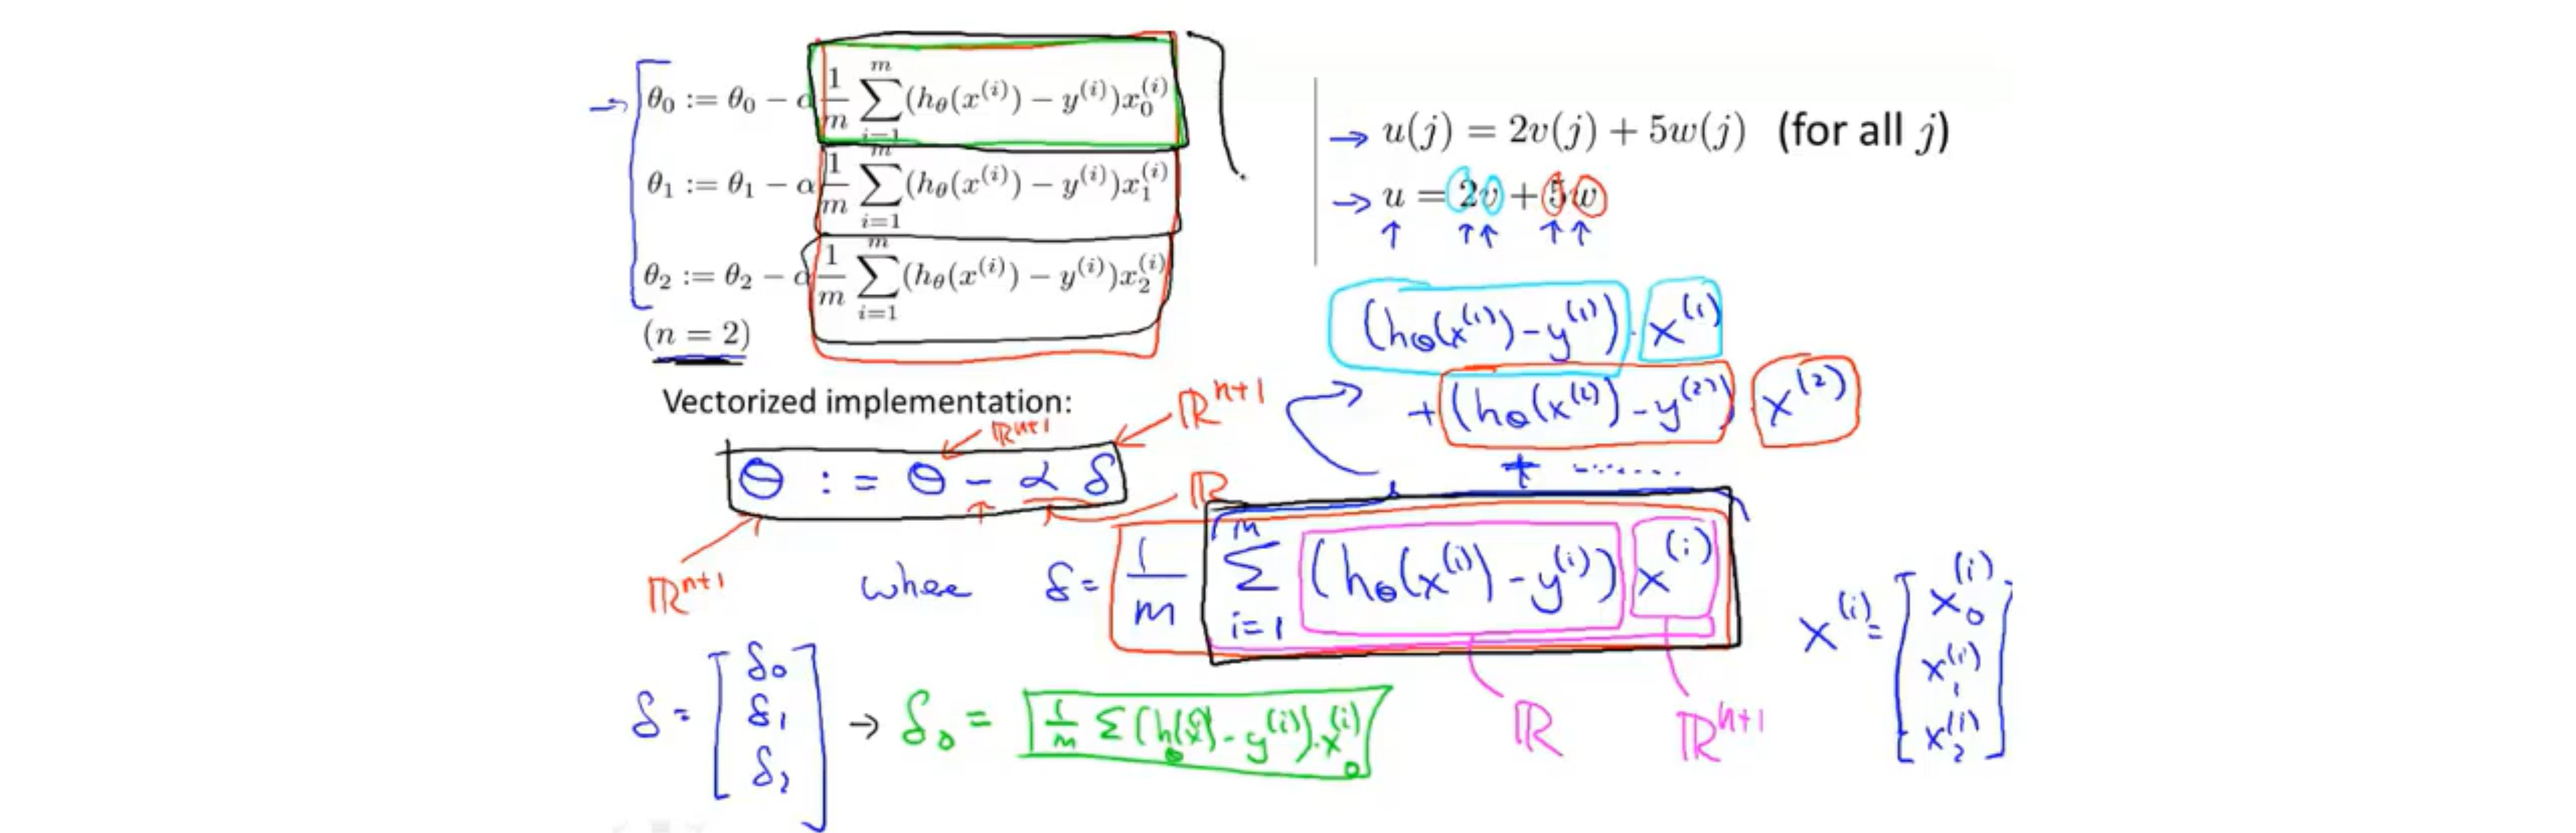 → θ₀ := θ₀ − α 1/m ∑_{i=1}^{m} (h_θ(x^{(i)}) − y^{(i)})x₀^{(i)}
θ₁ := θ₁ − α 1/m ∑_{i=1}^{m} (h_θ(x^{(i)}) − y^{(i)})x₁^{(i)}
θ₂ := θ₂ − α 1/m ∑_{i=1}^{m} (h_θ(x^{(i)}) − y^{(i)})x₂^{(i)}
(n = 2)
→ u(j) = 2v(j) + 5w(j) (for all j)
→ u = 2v + 5w
↑ ↑↑ ↑↑
(h_θ(x^{(1)}) − y^{(1)}) · x^{(1)}
+ (h_θ(x^{(2)}) − y^{(2)}) x^{(2)}
+ .......
Vectorized implementation:
ℝ^{n+1}
ℝ^{n+1}
θ := θ − α δ
ℝ
ℝ^{n+1}
where δ = 1/m ∑_{i=1}^{m} (h_θ(x^{(i)}) − y^{(i)}) x^{(i)}
ℝ ℝ^{n+1}
x^{(i)} = [x₀^{(i)} x₁^{(i)} x₂^{(i)}]
δ = [δ₀ δ₁ δ₂] → δ₀ = 1/m ∑ (h_θ(x^{(i)}) − y^{(i)}) · x₀^{(i)}